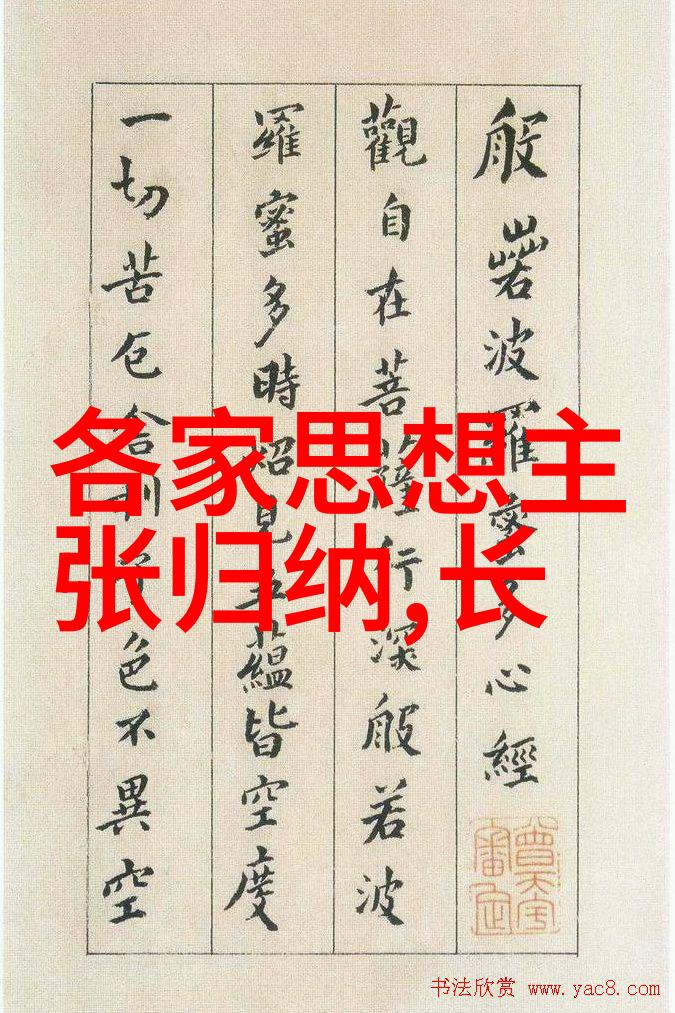 般若波羅蜜多心經
觀自在菩薩行深般若波
羅蜜多時照見五蘊皆空度
一切苦厄舍利子色不異空
各家思想主
张归纳,长
书法欣赏 www.yac8.com